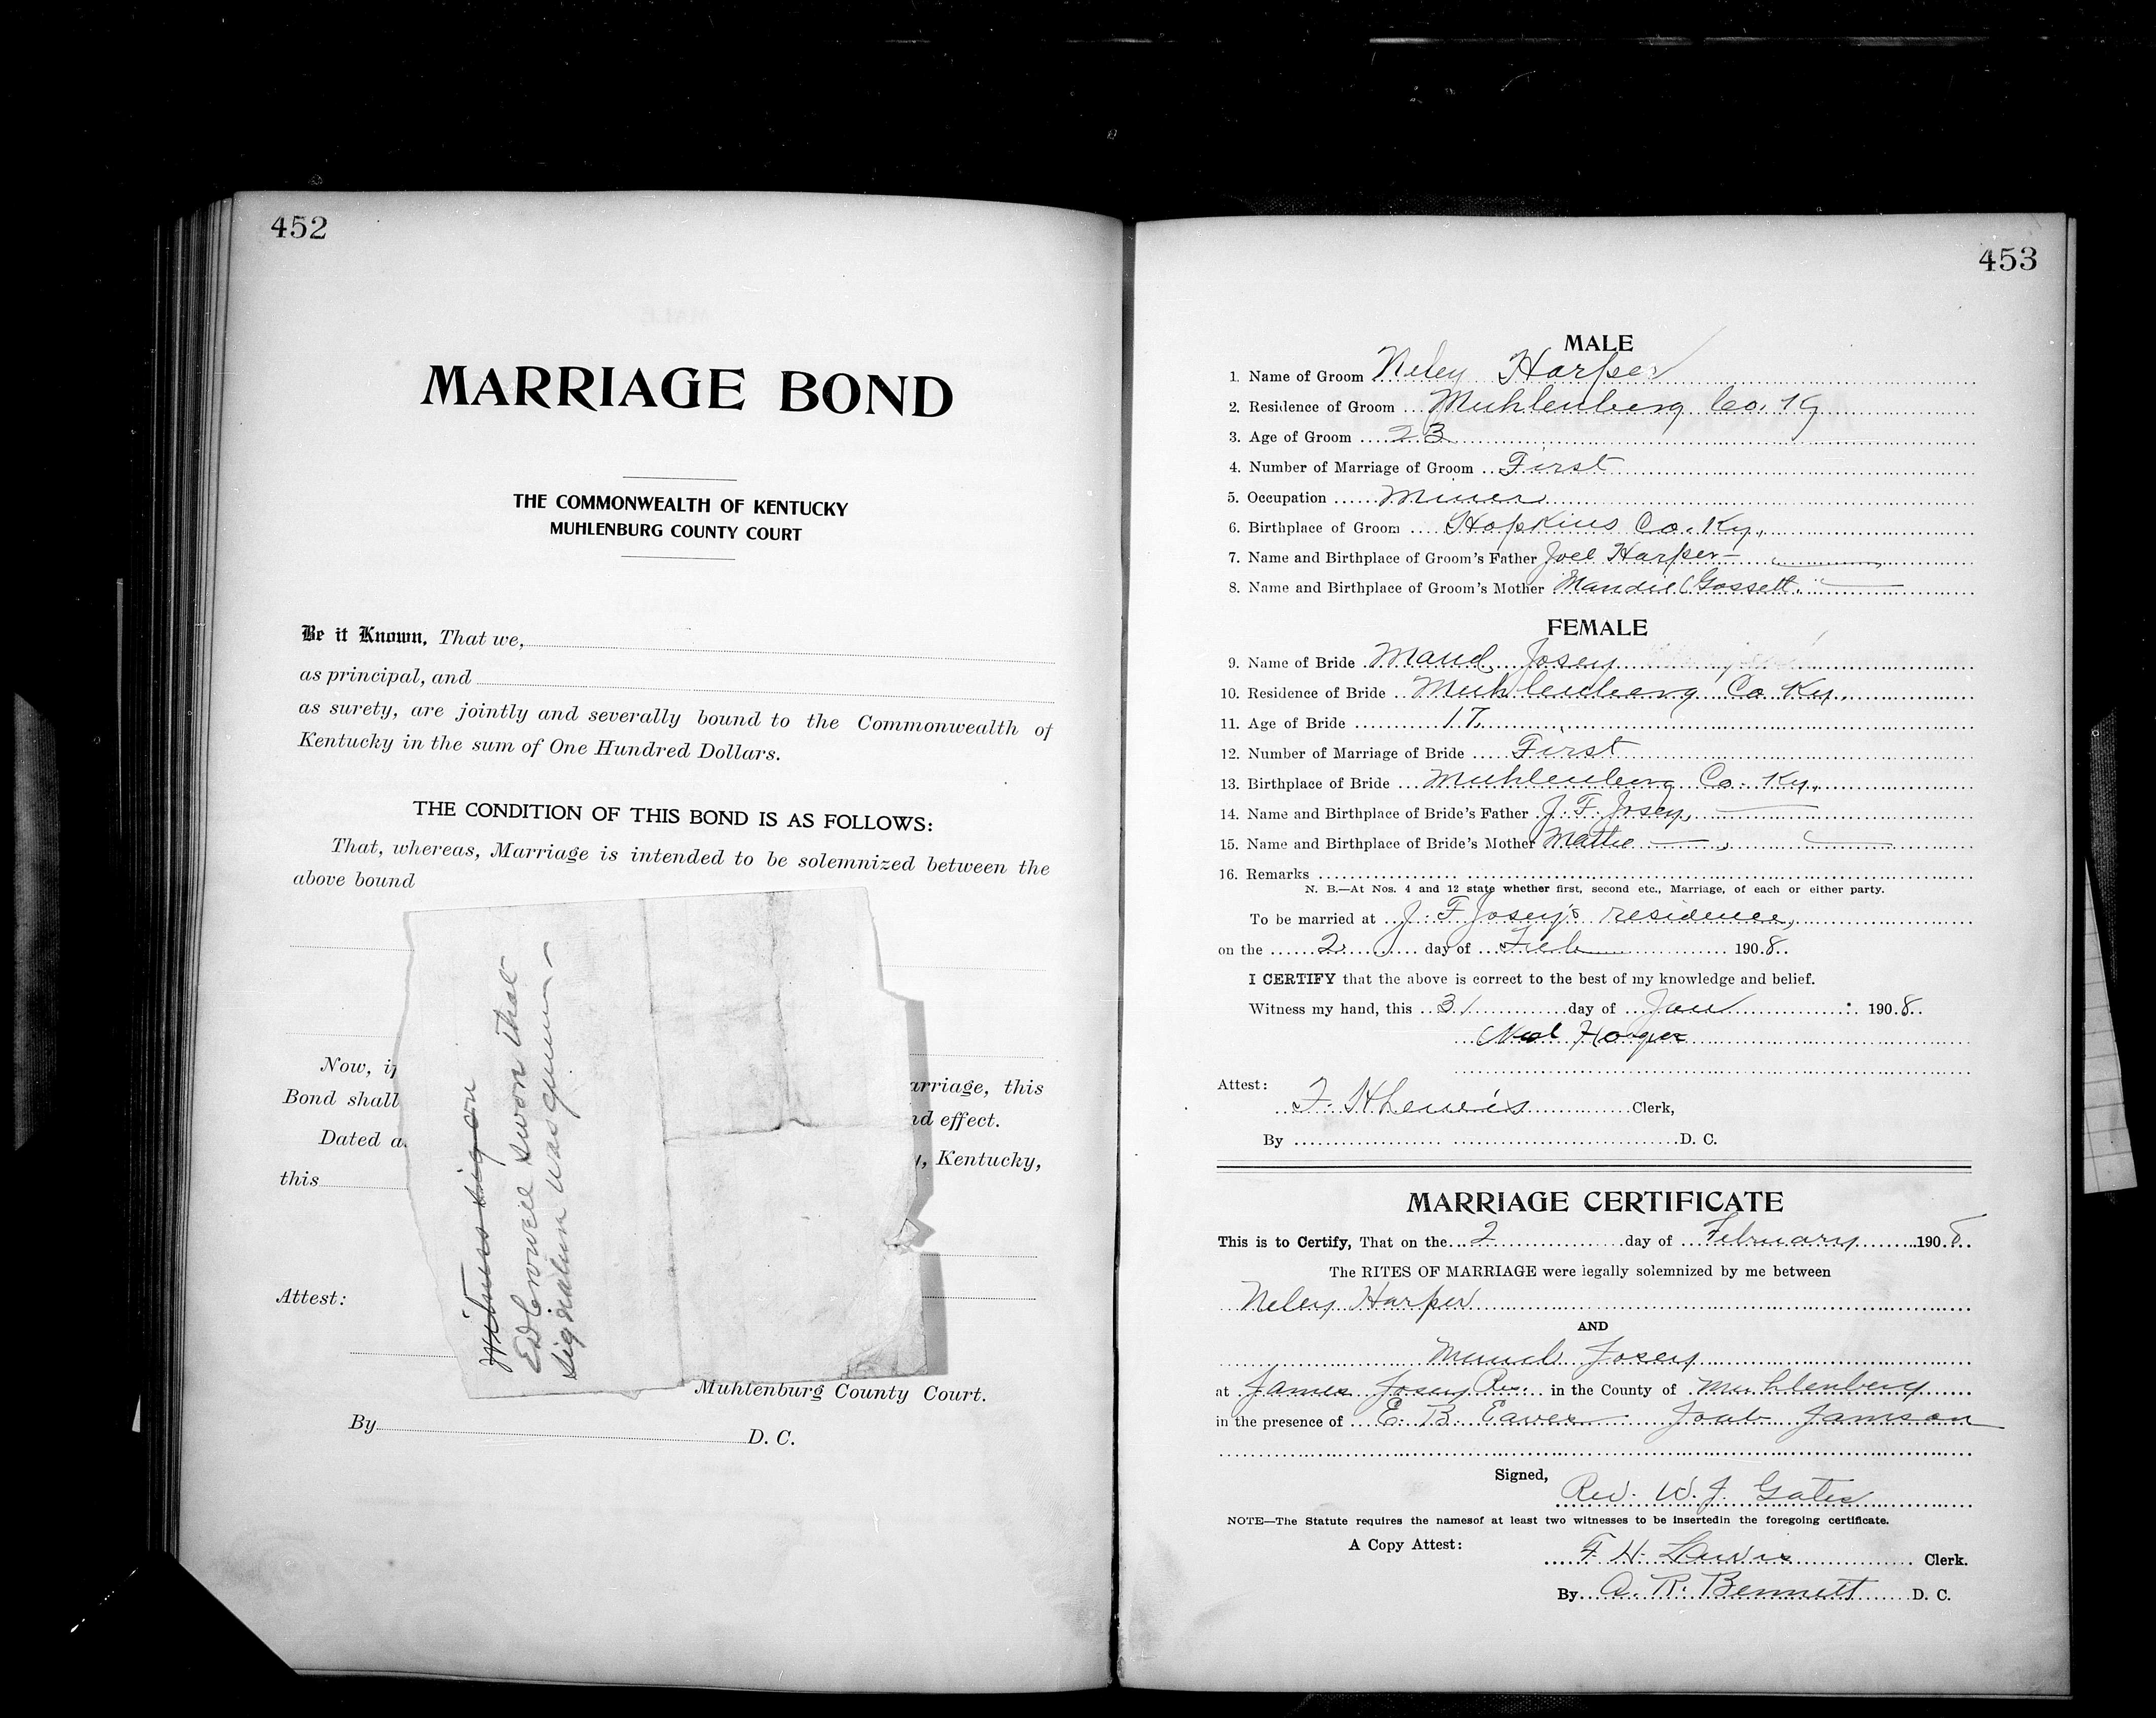 452
MARRIAGE BOND
THE COMMONWEALTH OF KENTUCKY
MUHLENBURG COUNTY COURT
Be it Known, That we,
as principal, and
as surety, are jointly and severally bound to the Commonwealth of
Kentucky in the sum of One Hundred Dollars.
THE CONDITION OF THIS BOND IS AS FOLLOWS:
That, whereas, Marriage is intended to be solemnized between the
above bound
Now, if
arriage, this
Bond shall
nd effect.
Dated a
, Kentucky,
this
Attest:
Muhlenburg County Court.
By D. C.
Witness sig on
Ed Crowell sworn that
signature was
453
MALE
1. Name of Groom Neley Harper
2. Residence of Groom Muhlenberg Co. Ky
3. Age of Groom 23
4. Number of Marriage of Groom First
5. Occupation Miner
6. Birthplace of Groom Hopkins Co. Ky.
7. Name and Birthplace of Groom's Father Joel Harper
8. Name and Birthplace of Groom's Mother Mandie Gossett.
FEMALE
9. Name of Bride Maud Josey
10. Residence of Bride Muhlenberg Co Ky.
11. Age of Bride 17
12. Number of Marriage of Bride First
13. Birthplace of Bride Muhlenberg Co. Ky.
14. Name and Birthplace of Bride's Father J. F. Josey,
15. Name and Birthplace of Bride's Mother Mattie
16. Remarks
N. B.—At Nos. 4 and 12 state whether first, second etc., Marriage, of each or either party.
To be married at J. F. Josey's residence,
on the 2 day of Feb 1908
I CERTIFY that the above is correct to the best of my knowledge and belief.
Witness my hand, this 31 day of Jan 1908
Attest:
F. H. Lewis Clerk,
By D. C.
MARRIAGE CERTIFICATE
This is to Certify, That on the 2 day of February 1908
The RITES OF MARRIAGE were legally solemnized by me between
Neley Harper
AND
Maud Josey
at James Josey Res. in the County of Muhlenberg
in the presence of E. B. Eaves Joab Jamson
Signed,
Rev. W. J. Gates
NOTE—The Statute requires the namesof at least two witnesses to be insertedin the foregoing certificate.
A Copy Attest:
F. H. Lewis Clerk.
By A. R. Bennett D. C.